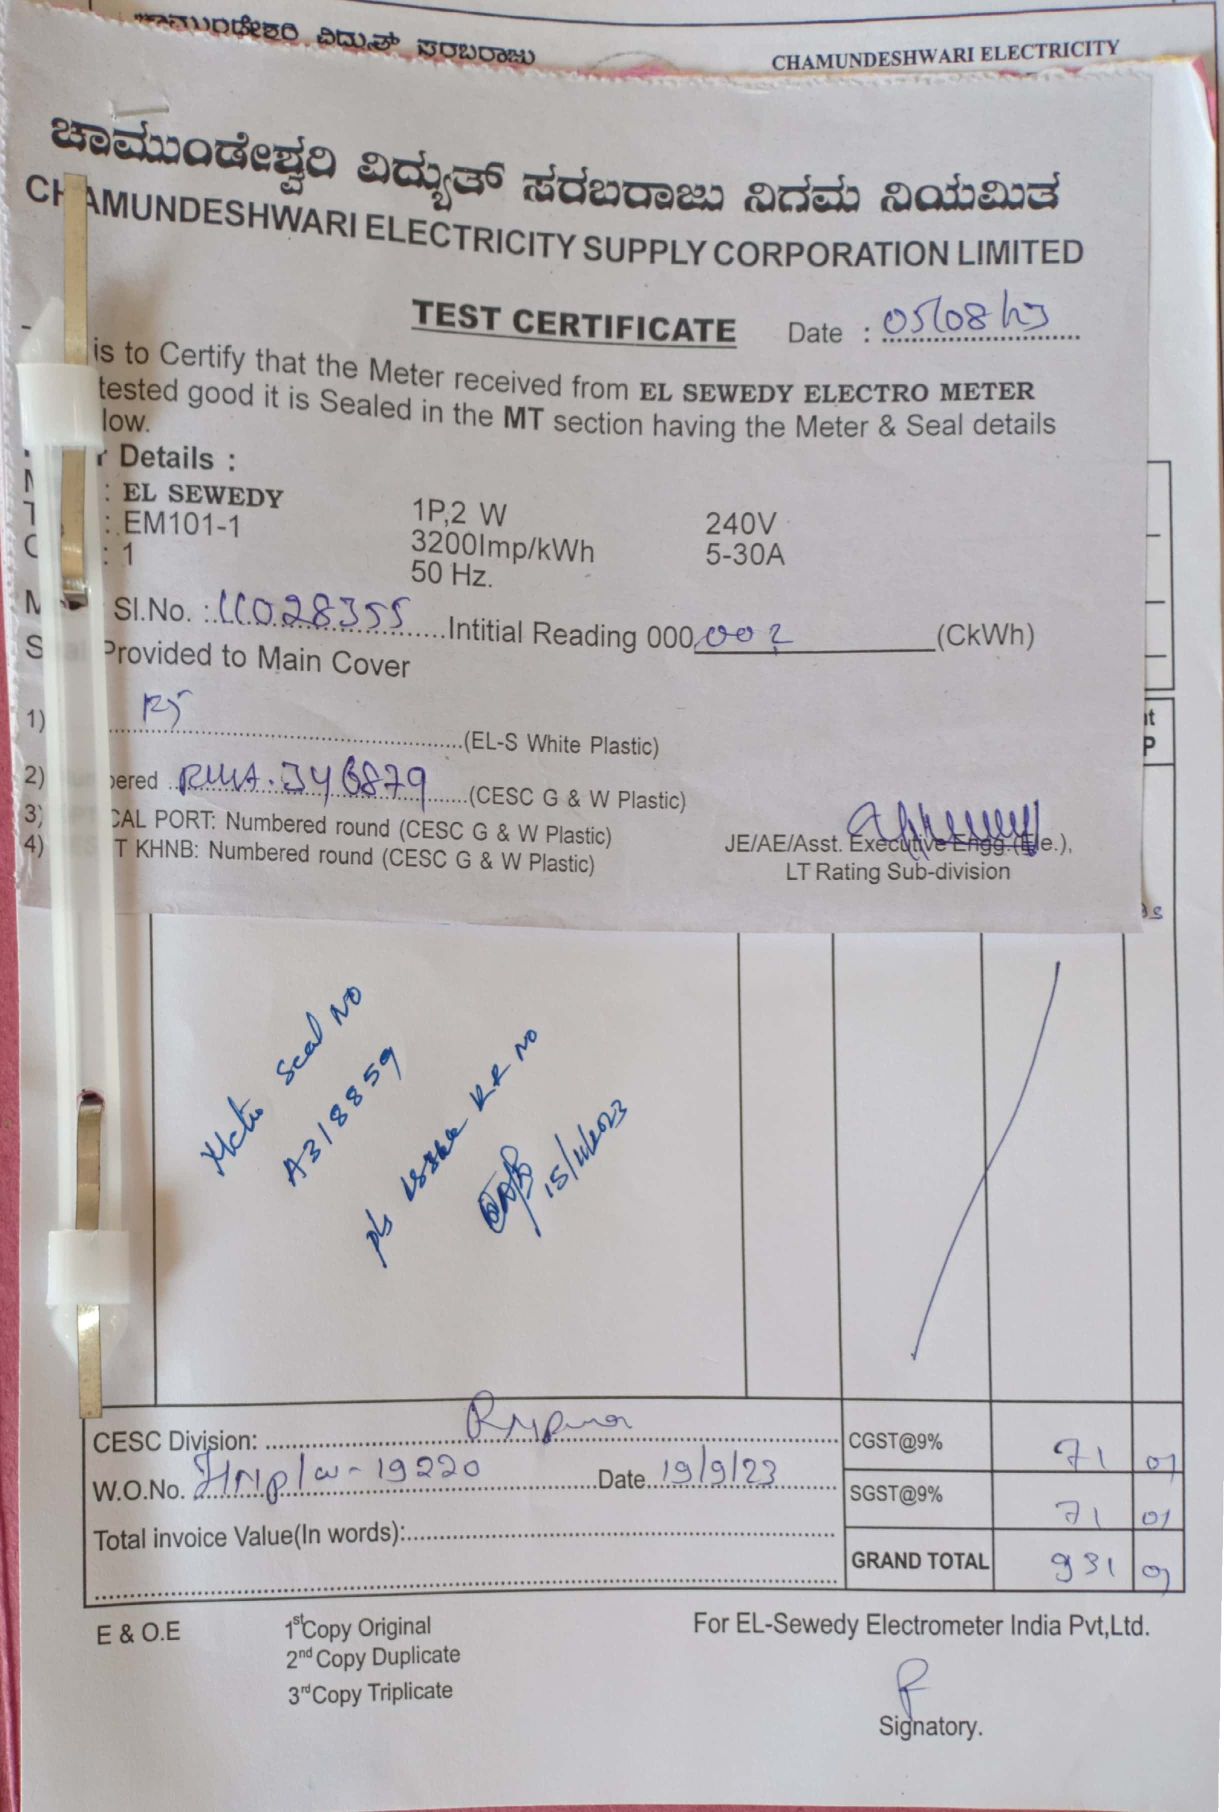 ಚಾಮುಂಡೇಶ್ವರಿ ವಿದ್ಯುತ್ ಸರಬರಾಜು
CHAMUNDESHWARI ELECTRICITY
ಚಾಮುಂಡೇಶ್ವರಿ ವಿದ್ಯುತ್ ಸರಬರಾಜು ನಿಗಮ ನಿಯಮಿತ
CHAMUNDESHWARI ELECTRICITY SUPPLY CORPORATION LIMITED
TEST CERTIFICATE Date : 05/08/23
is to Certify that the Meter received from EL SEWEDY ELECTRO METER
tested good it is Sealed in the MT section having the Meter & Seal details
low.
r Details :
: EL SEWEDY 1P,2 W 240V
: EM101-1 3200Imp/kWh 5-30A
: 1 50 Hz.
Sl.No. : 11028355 Intitial Reading 000 002 (CkWh)
Provided to Main Cover
1) (EL-S White Plastic)
2) bered 346879 (CESC G & W Plastic)
3) CAL PORT: Numbered round (CESC G & W Plastic)
4) T KHNB: Numbered round (CESC G & W Plastic)
JE/AE/Asst. Executive Engg.(Ele.),
LT Rating Sub-division
Seal No
A318859
pls issue RR no
15/11/2023
CESC Division:
W.O.No. 19220 Date 19/9/23
Total invoice Value(In words):
CGST@9% 71 01
SGST@9% 71 01
GRAND TOTAL 931
E & O.E
1st Copy Original
2nd Copy Duplicate
3rd Copy Triplicate
For EL-Sewedy Electrometer India Pvt,Ltd.
Signatory.